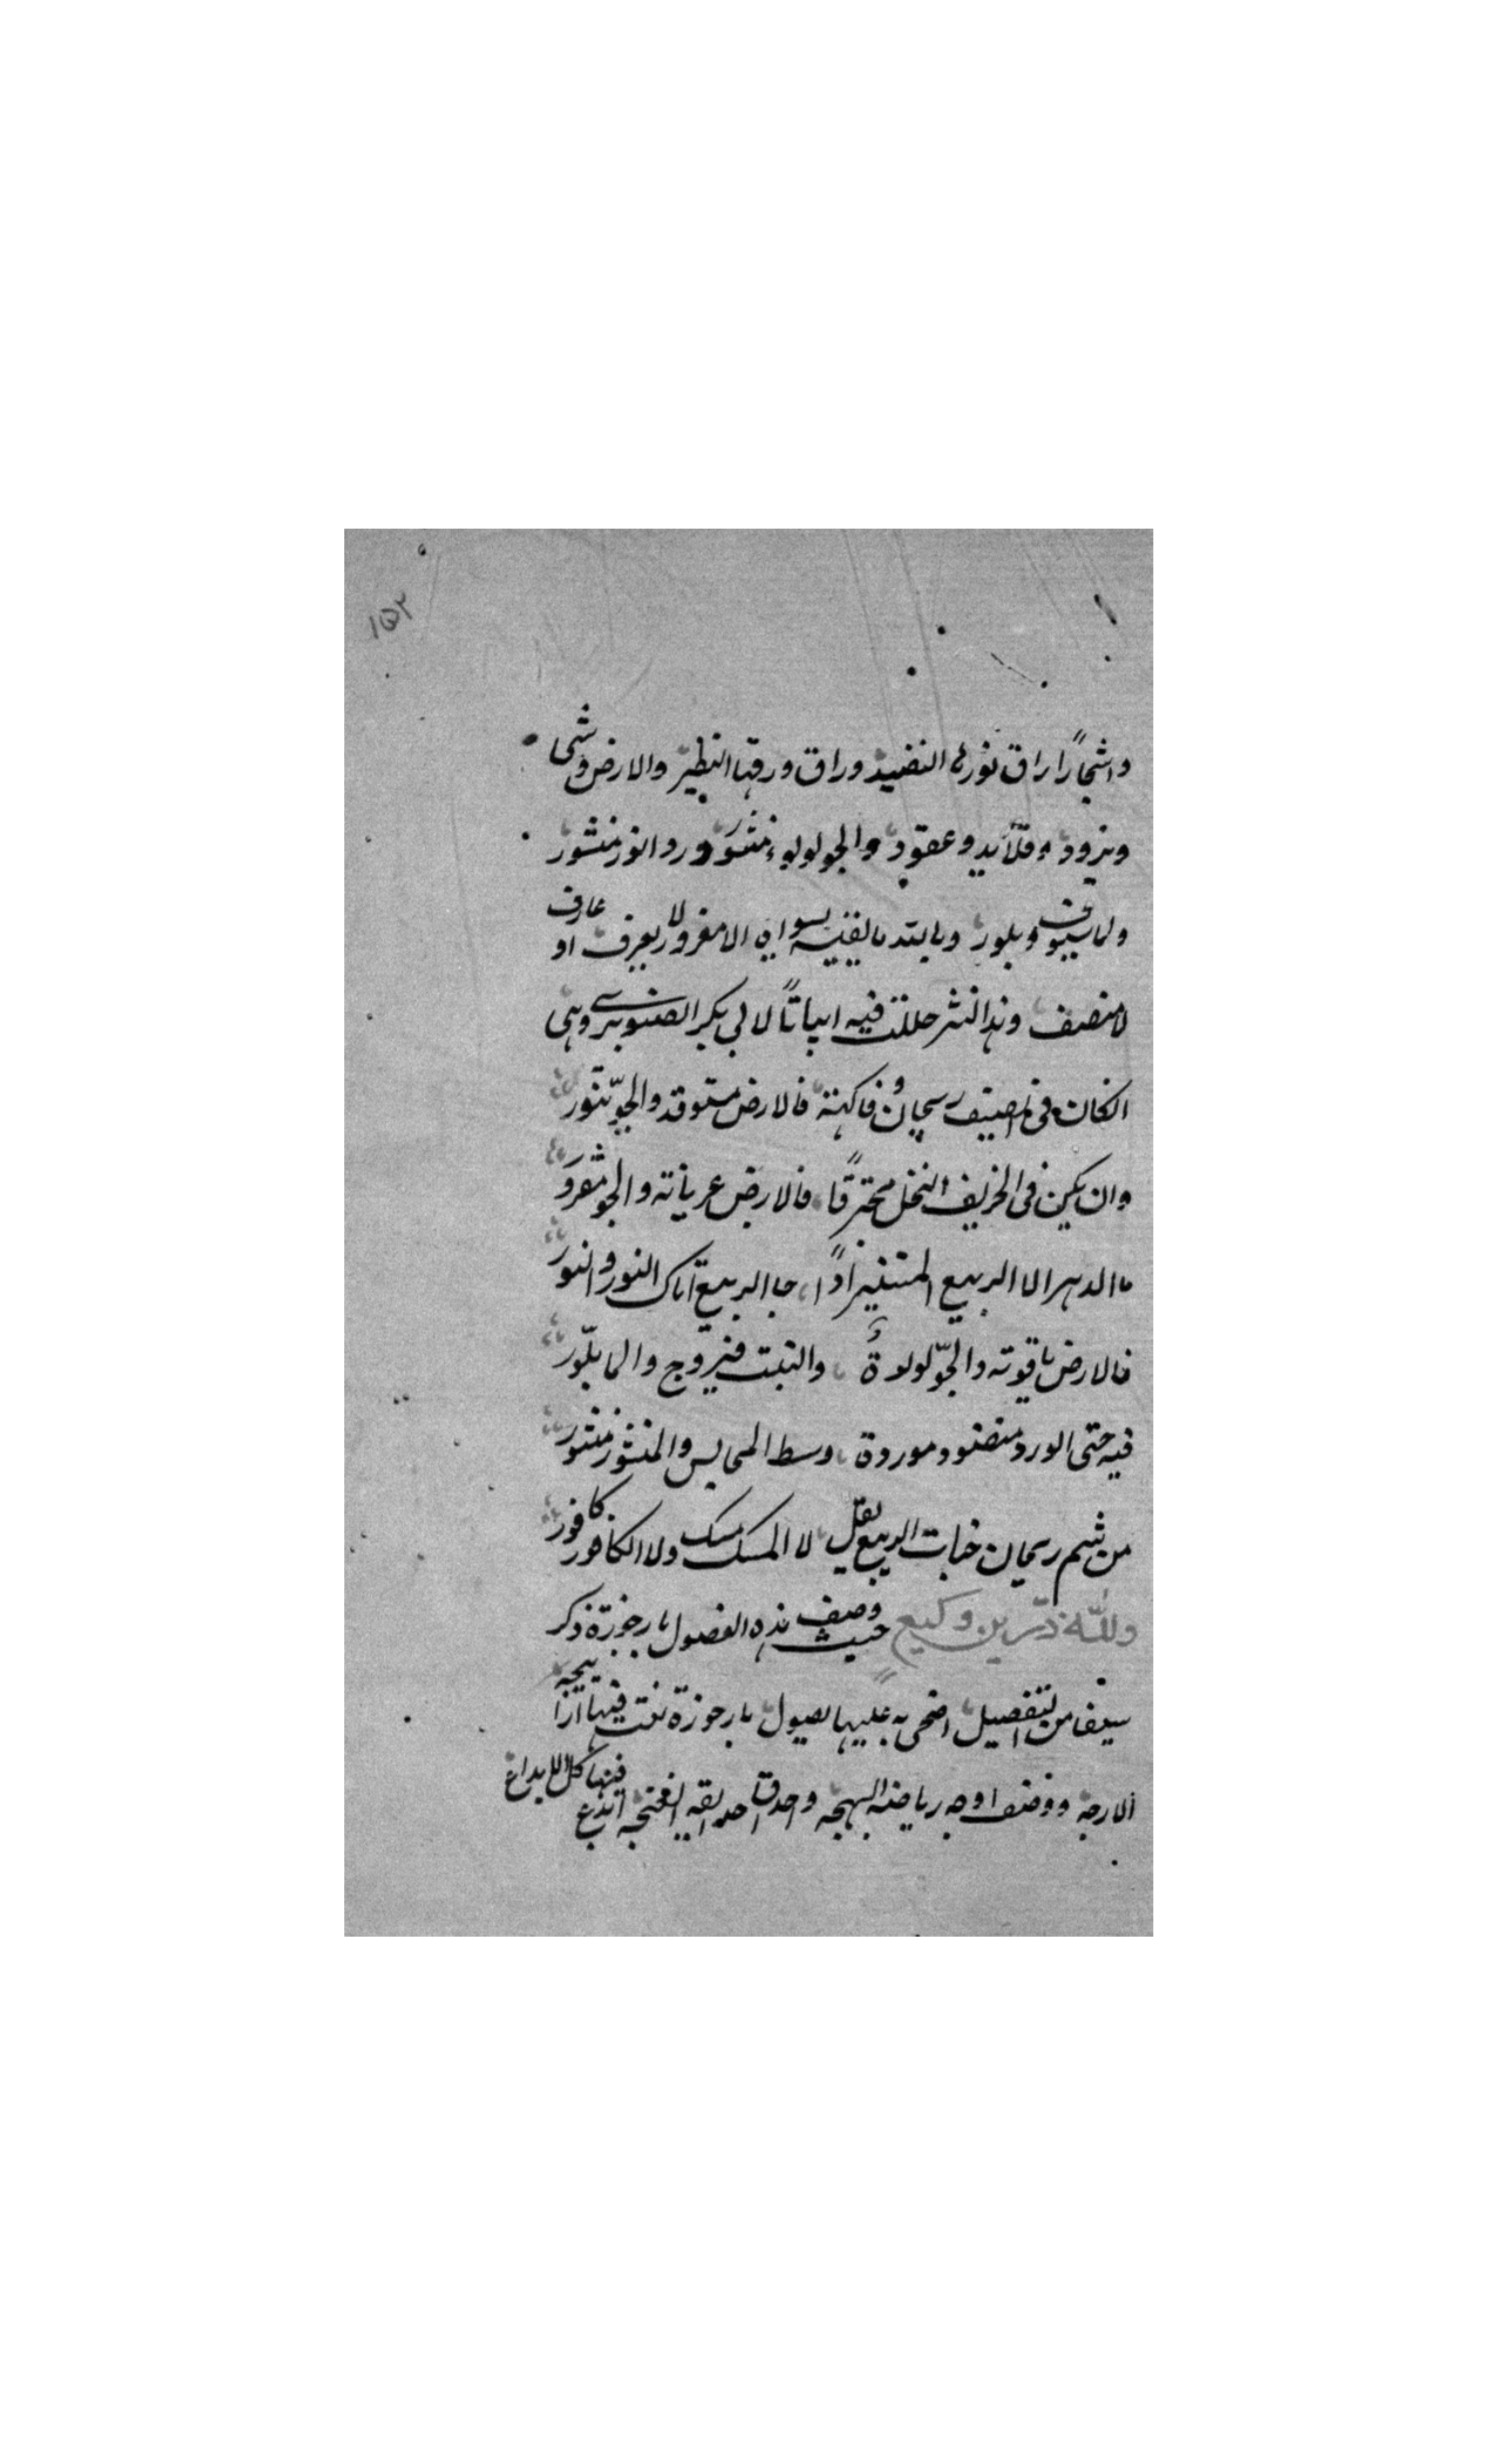 ١٥٢
واشجارًا راق نورها النضيد وراق ورقها النظير والارض وشى
وبرود وقلايد وعقود والجو لولوء منثور ورد انور منثور
ولما سيوف وبلور وما يتدما لقيه بسواى الا مغرور لا يعرف او عارف
لا منصف وهذا النثر حللت فيه ابياتًا لابي بكر الصنوبرى وهى
ان كان فى الصيف ريحان وفاكهة فالارض مستوقد والجوّ تنّور
وان يكن فى الخريف النخل محترقًا فالارض عريانة والجو مقرور
ما الدهر الا الربيع المستنير اذًا جا الربيع اتاك النور والنور
فالارض ياقوتة والجوّ لولوةٌ والنبت فيروج والما بلّور
فيه حتى الورد منضود مورده وسط المجالس والمنثور منثور
من شم ريحان خبات الربيع يقل لا المسك مسك ولا الكافور كافور
ولله درّ بن وكيع حيث وصف هذه الفصول بارجوزة ذكر
سيفا من التفصيل اضحى به عليها يصول بارجوزة نفت فيها ازا يتجه
الارجة ووصف اوجه رياضه البهجه واحداق احدايقه الغنجه ابدع فيها كل الابداع